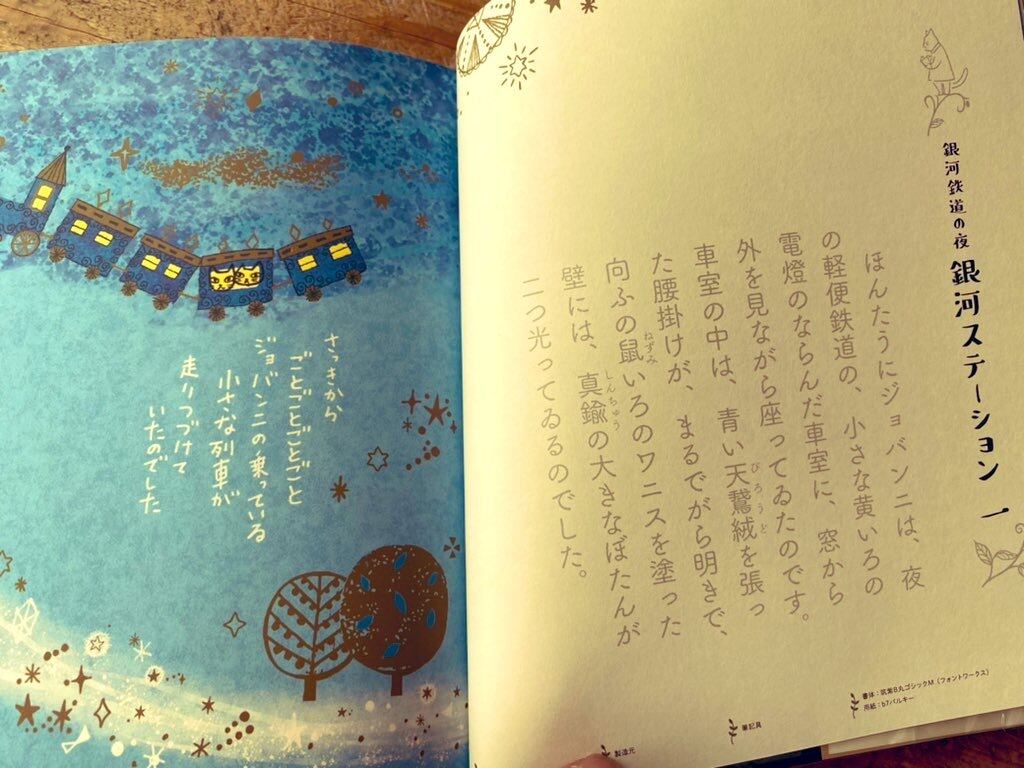 銀河鉄道の夜 銀河ステーション 一
ほんたうにジョバンニは、夜
の軽便鉄道の、小さな黄いろの
電燈のならんだ車室に、窓から
外を見ながら座ってゐたのです。
車室の中は、青い天鵞絨を張っ
びろうど
た腰掛けが、まるでがら明きで、
向ふの鼠いろのワニスを塗った
ねずみ
壁には、真鍮の大きなぼたんが
しんちゅう
二つ光ってゐるのでした。
書体：筑紫B丸ゴシックM（フォントワークス）
用紙：b7バルキー
筆記具
製造元
さっきから
ごとごとごとごと
ジョバンニの乗っている
小さな列車が
走りつづけて
いたのでした